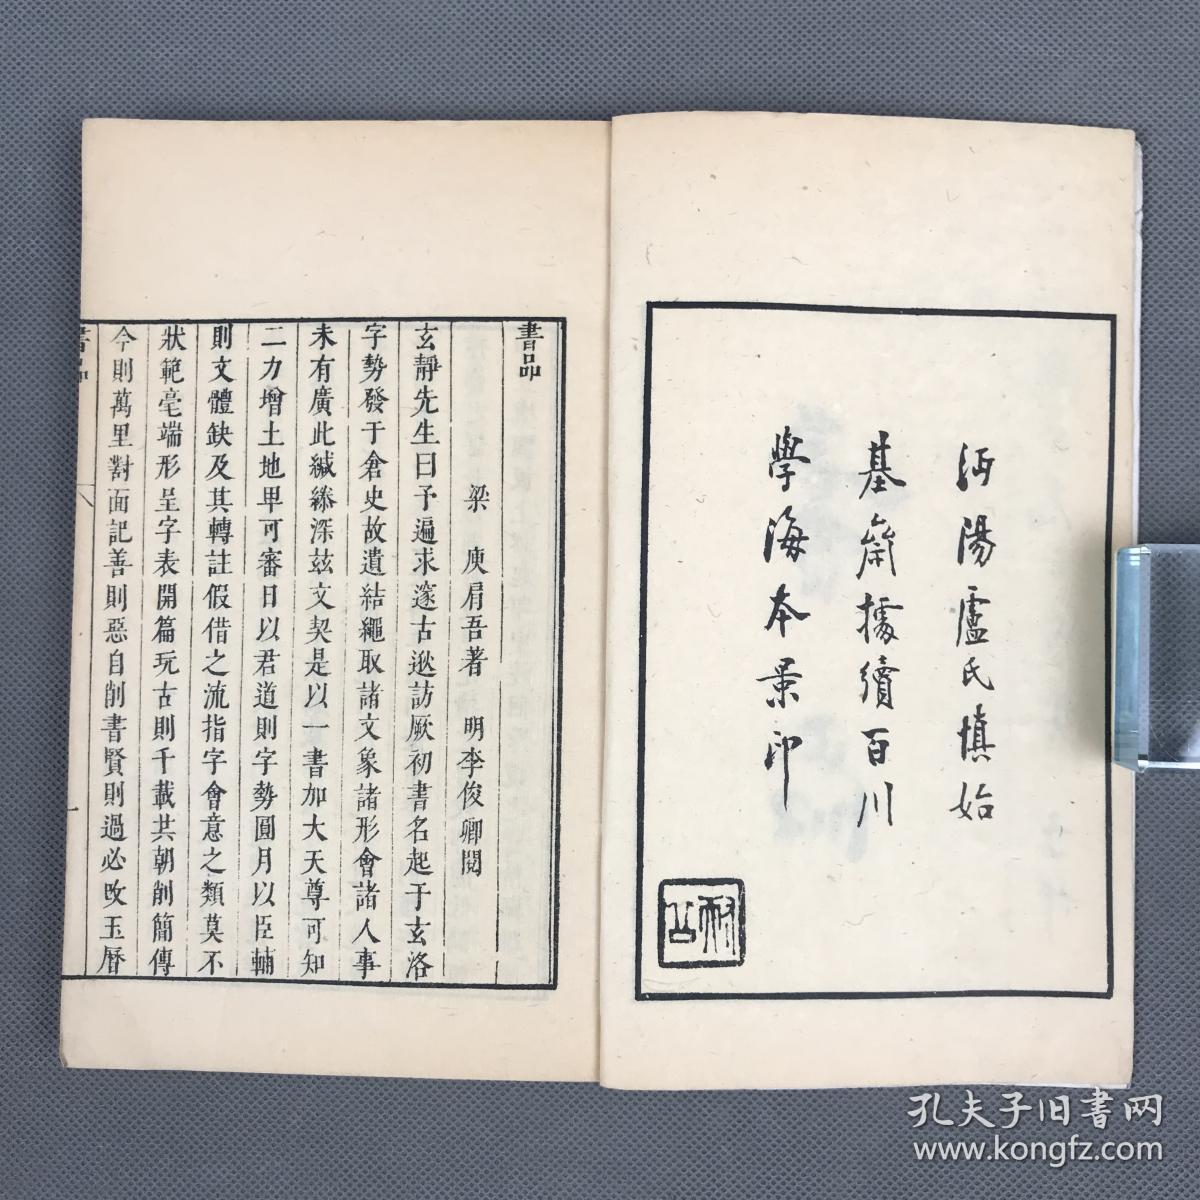 沔陽盧氏慎始
基齋據續百川
學海本景印
書品
梁 庾肩吾著 明李俊卿閱
玄靜先生曰予遍求邃古逖訪厥初書名起于玄洛
字勢發于倉史故遺結繩取諸文象諸形會諸人事
未有廣此緘縢深茲文契是以一書加大天尊可知
二力增土地卑可審日以君道則字勢圓月以臣輔
則文體缺及其轉註假借之流指字會意之類莫不
狀範毫端形呈字表開篇玩古則千載共朝削簡傳
今則萬里對面記善則惡自削書賢則過必改玉曆
書品
一
孔夫子旧书网
www.kongfz.com